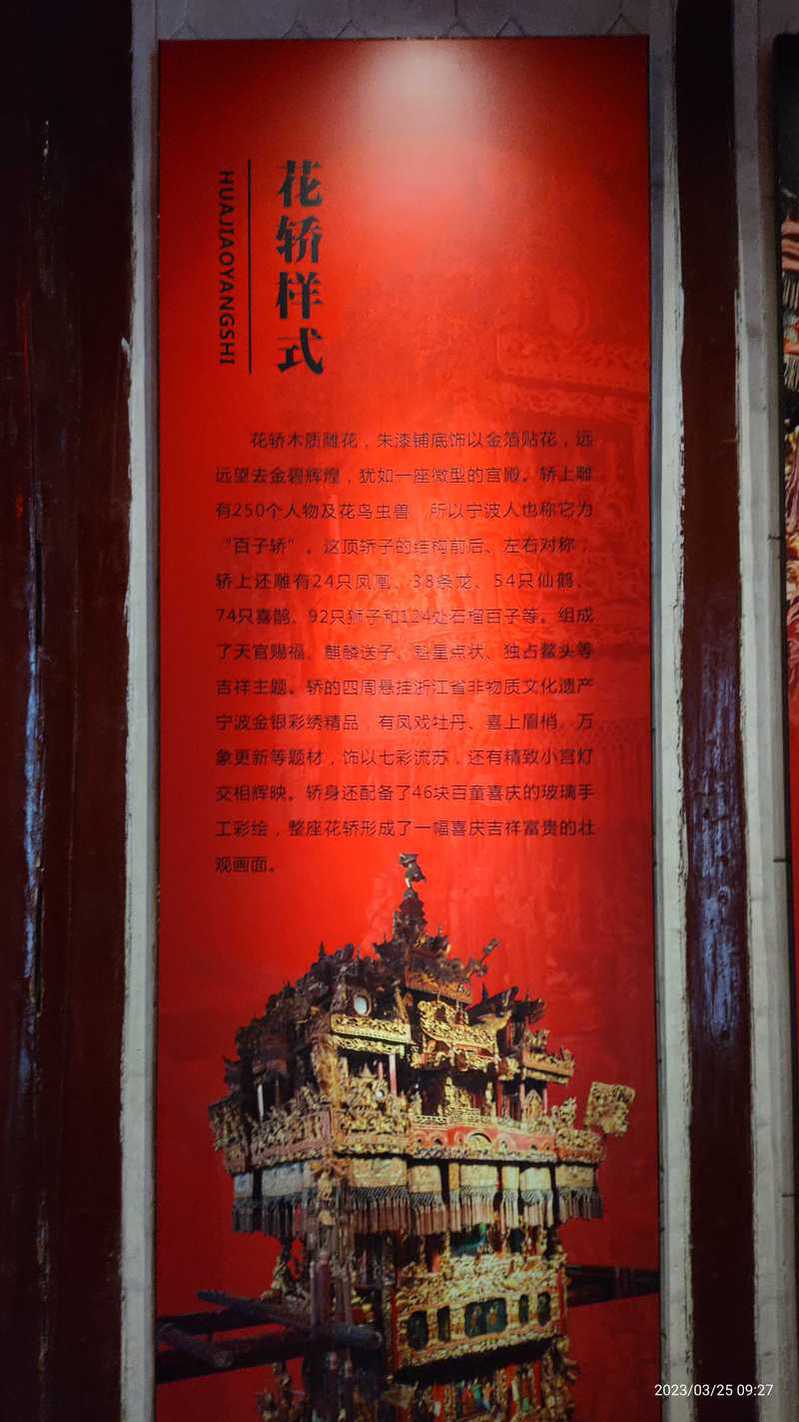 花轿样式
HUAJIAOYANGSHI
花轿木质雕花，朱漆铺底饰以金箔贴花，远
远望去金碧辉煌，犹如一座微型的宫殿。轿上雕
有250个人物及花鸟虫兽，所以宁波人也称它为
“百子轿”。这顶轿子的结构前后、左右对称，
轿上还雕有24只凤凰、38条龙、54只仙鹤、
74只喜鹊、92只狮子和124处石榴百子等。组成
了天官赐福、麒麟送子、魁星点状、独占鳌头等
吉祥主题。轿的四周悬挂浙江省非物质文化遗产
宁波金银彩绣精品，有凤戏牡丹、喜上眉梢、万
象更新等题材，饰以七彩流苏，还有精致小宫灯
交相辉映。轿身还配备了46块百童喜庆的玻璃手
工彩绘，整座花轿形成了一幅喜庆吉祥富贵的壮
观画面。
2023/03/25 09:27